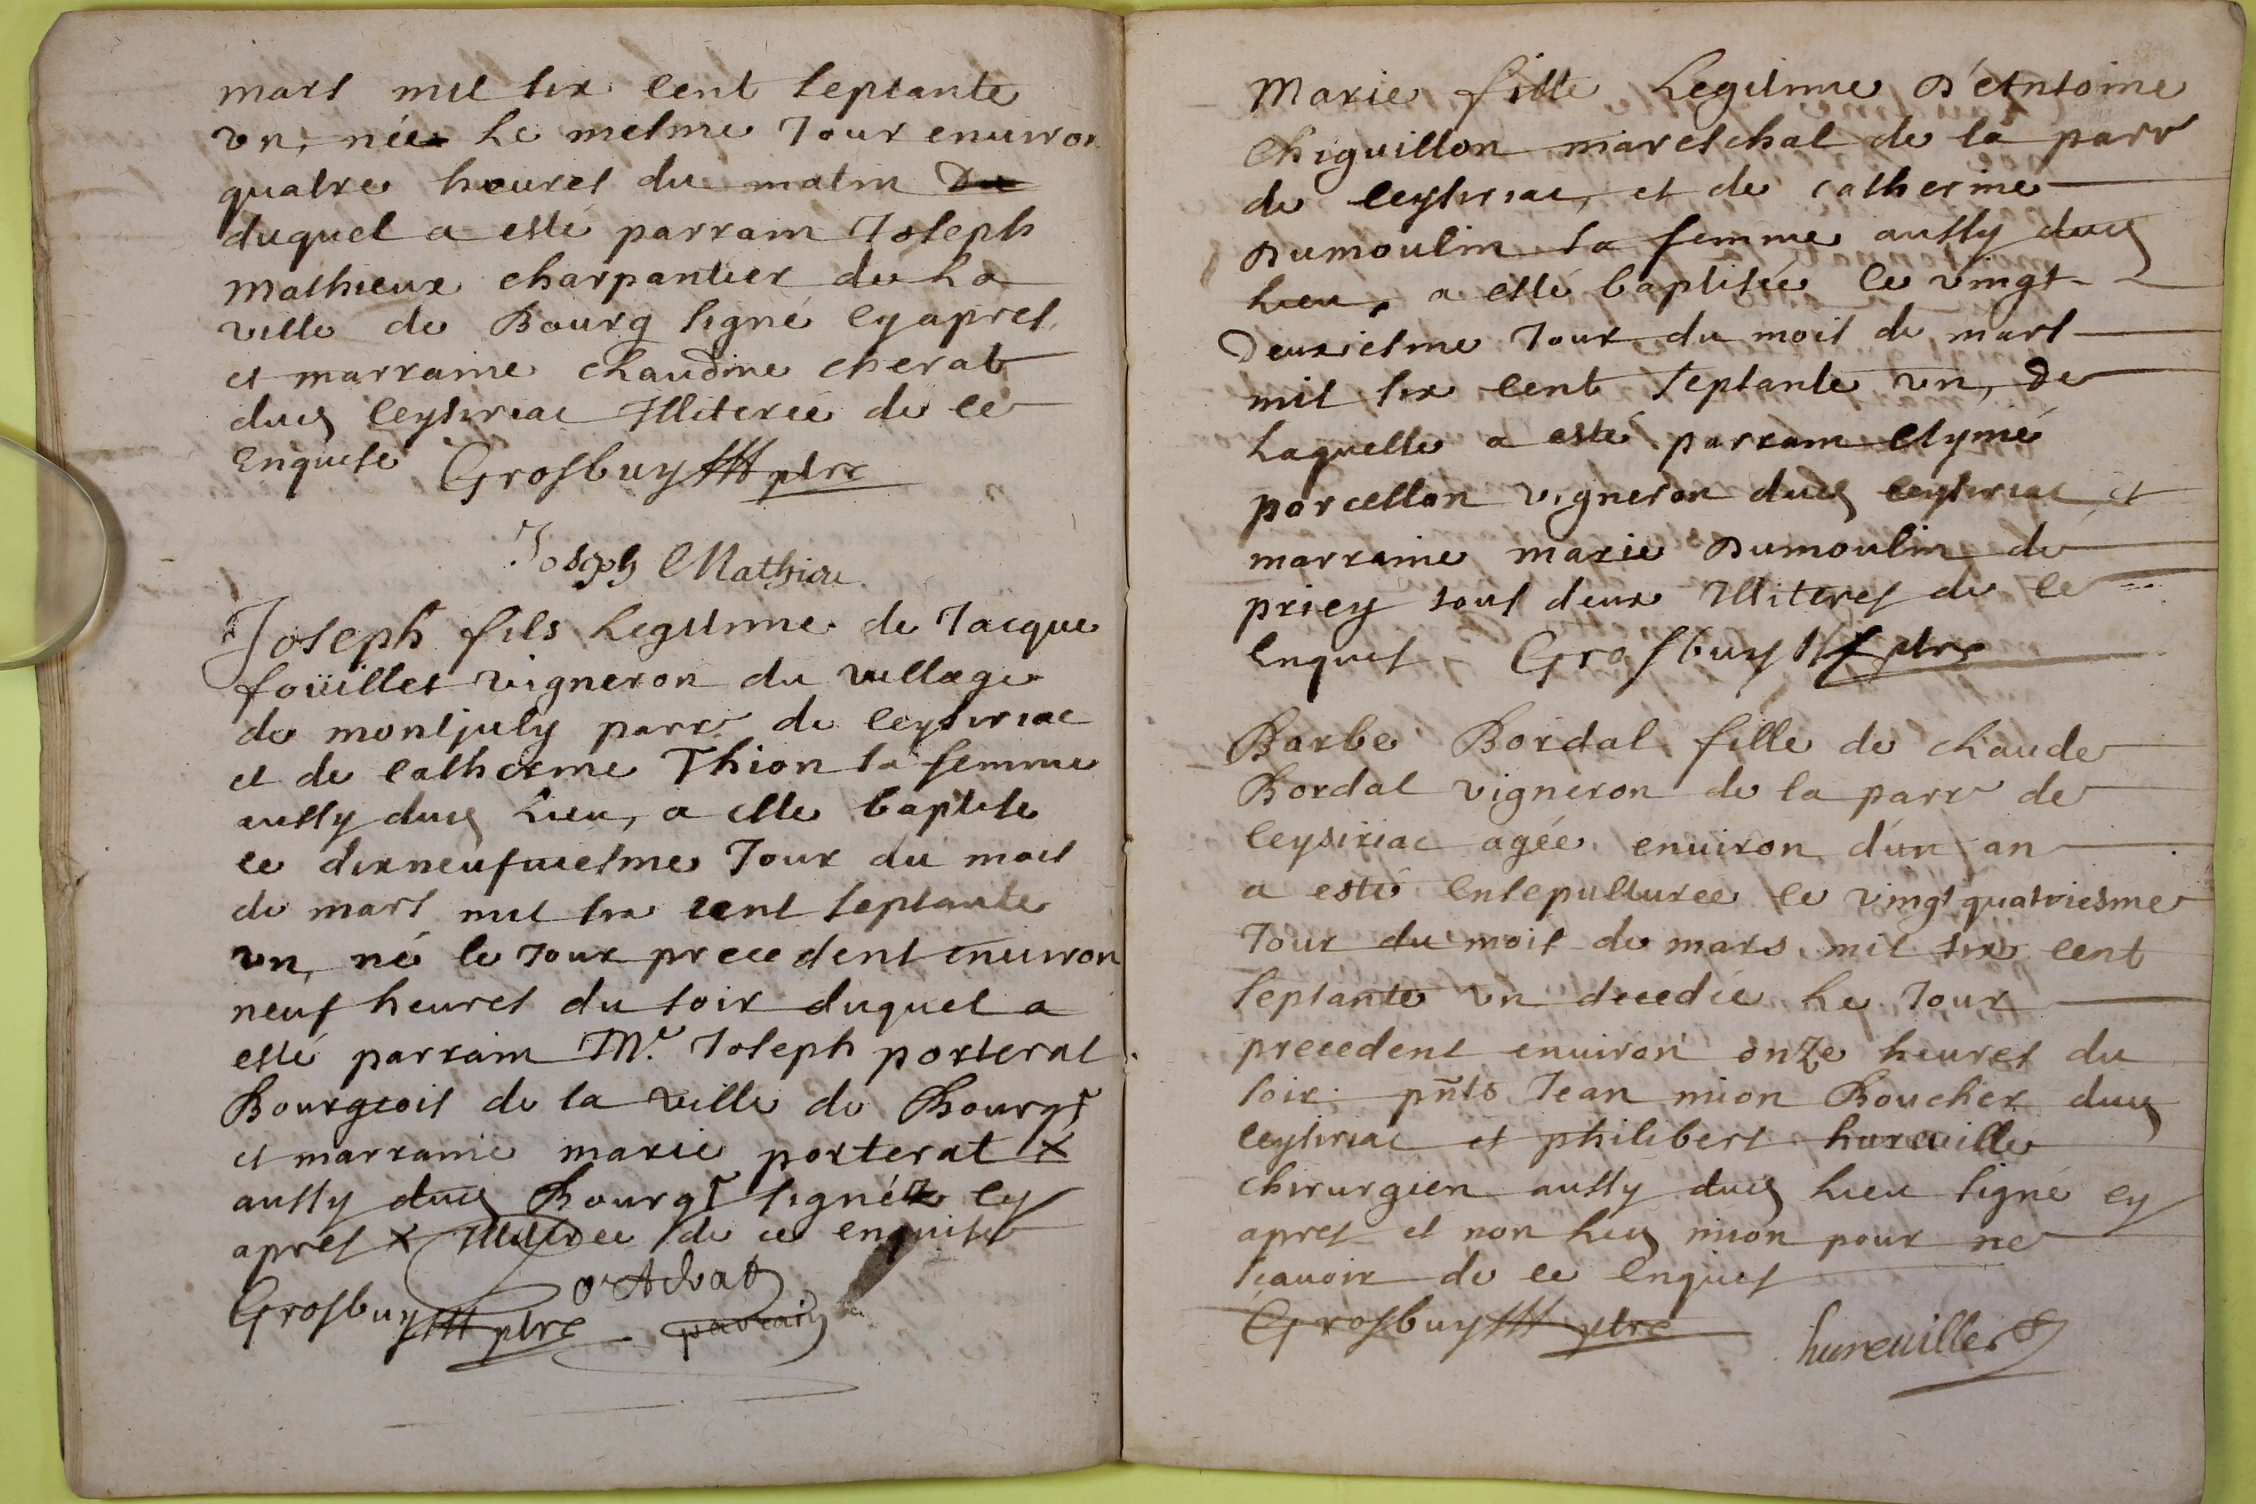 mars mil six cent septante
vn, née le mesme Jour enuiron
quatre heures du matin du
duquel a esté parrain Joseph
Mathieux charpantier de La
ville de Bourg signé cy apres
et marraine claudine cherat
dud ceysiriac Illiterée de ce
enquise Grosbuy ptre
Joseph Mathieu
Joseph fils Legitime de Jacque
foüillet vigneron du village
de montjuly parr de ceysiriac
et de catherine Thion sa femme
aussy dud Lieu, a este baptise
le dixneufuiesme Jour du mois
de mars mil six cent septante
vn, né le Jour precedent enuiron
neuf heures du soir duquel a
esté parrain Mr. Joseph porterat
Bourgeois de la ville de Bourg
et marraine marie porterat x
aussy dud Bourg signéz cy
apres x Illiteree de ce enquise
Grosbuy ptre parrain
Marie fille Legitime D'Antoine
Chiguillon mareschal de la parr
de ceysiriac, et de catherine
Dumoulin sa femme aussy dud
Lieu, a esté baptisée le vingt
Deuxiesme Jour du mois de mars
mil six cent septante vn, De
Laquelle a esté parrain Aymé
porcellon vigneron dud ceysiriac et
marraine marie Dumoulin de
priey tous deux Illiteres de ce
Enquis Grosbuy ptre
Barbe Bordal fille de claude
Bordal vigneron de la parr de
ceysiriac agée enuiron d'un an
a esté Ensepulturee le vingt quatriesme
Jour du mois de mars mil six cent
septante vn decedée Le Jour
precedent enuiron onze heures du
soir pñts Jean mion Boucher dud
ceysiriac et philibert hureuille
chirurgien aussy dud Lieu signé cy
apres et non Led mion pour ne
scauoir de ce Enquis
Grosbuy ptre hureuille